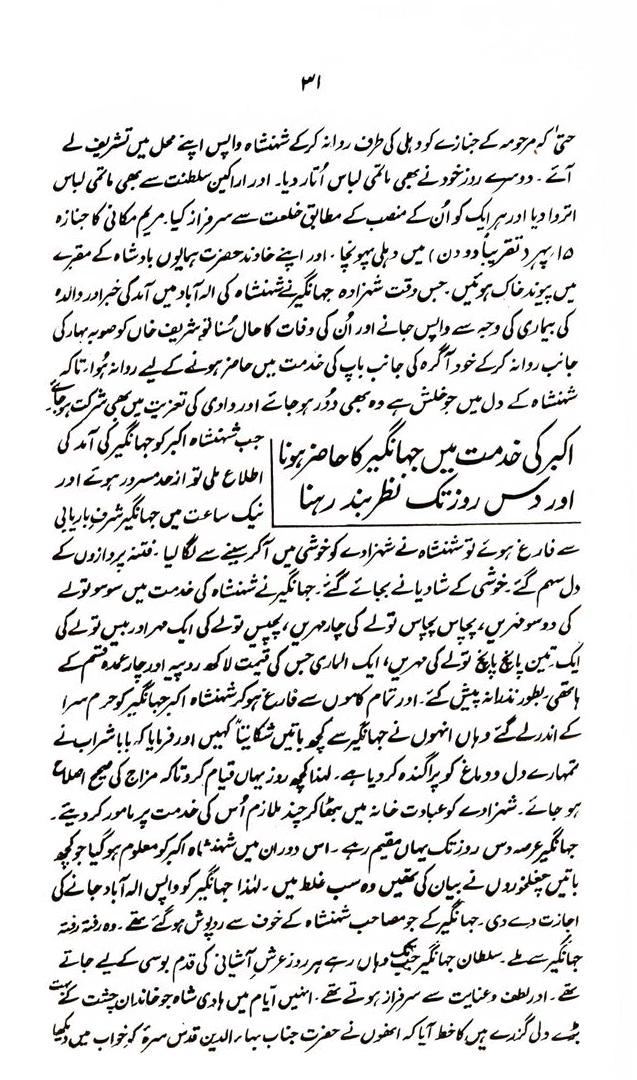 ۳۱
حتیٰ کہ مرحومہ کے جنازے کو دہلی کی طرف روانہ کرکے شہنشاہ واپس اپنے محل میں تشریف لے
آئے۔ دوسرے روز خود نے بھی ماتمی لباس اُتار دیا۔ اور اراکین سلطنت سے بھی ماتمی لباس
اتروا دیا اور ہر ایک کو اُن کے منصب کے مطابق خلعت سے سرفراز کیا۔ مریم مکانی کا جنازہ
۱۵ پہر (تقریباً دو دن) میں دہلی پہونچا۔ اور اپنے خاوند حضرت ہمایوں بادشاہ کے مقبرے
میں پیوند خاک ہوئیں۔ جس وقت شہزادہ جہانگیر نے شہنشاہ کی الہ آباد میں آمد کی خبر اور والدہ
کی بیماری کی وجہ سے واپس جانے اور اُن کی وفات کا حال سُنا تو شریف خاں کو صوبہ بہار کی
جانب روانہ کرکے خود آگرہ کی جانب باپ کی خدمت میں حاضر ہونے کے لیے روانہ ہُوا، تاکہ
شہنشاہ کے دل میں جو خلش ہے وہ بھی دُور ہو جائے اور دادی کی تعزیت میں بھی شرکت ہو جائے۔
اکبر کی خدمت میں جہانگیر کا حاضر ہونا
اور دس روز تک نظر بند رہنا
جب شہنشاہ اکبر کو جہانگیر کی آمد کی
اطلاع ملی تو ازحد مسرور ہوئے اور
نیک ساعت میں جہانگیر شرف باریابی
سے فارغ ہوئے تو شہنشاہ نے شہزادے کو خوشی میں آکر سینے سے لگا لیا۔ فتنہ پردازوں کے
دل سہم گئے۔ خوشی کے شادیانے بجائے گئے۔ جہانگیر نے شہنشاہ کی خدمت میں سو سو تولے
کی دو سو مہریں، پچاس پچاس تولے کی چار مہریں، پچیس تولے کی ایک مہر اور بیس تولے کی
ایک، تین پانچ پانچ تولے کی مہریں، ایک الماری جس کی قیمت لاکھ روپیہ اور چار عمدہ قسم کے
ہاتھی بطور نذرانہ پیش کئے۔ اور تمام کاموں سے فارغ ہو کر شہنشاہ اکبر جہانگیر کو حرم سرا
کے اندر لے گئے وہاں انہوں نے جہانگیر سے کچھ باتیں شکایتاً کہیں اور فرمایا کہ بابا شراب نے
تمہارے دل و دماغ کو پراگندہ کر دیا ہے۔ لہٰذا کچھ روز یہاں قیام کرو تاکہ مزاج کی صحیح اصلاح
ہو جائے۔ شہزادے کو عبادت خانہ میں بیٹھا کر چند ملازم اُس کی خدمت پر مامور کر دیئے۔
جہانگیر عرصہ دس روز تک یہاں مقیم رہے۔ اس دوران میں شہنشاہ اکبر کو معلوم ہو گیا جو کچھ
باتیں چغلخوروں نے بیان کی تھیں وہ سب غلط ہیں۔ لہٰذا جہانگیر کو واپس الہ آباد جانے کی
اجازت دے دی۔ جہانگیر کے جو مصاحب شہنشاہ کے خوف سے روپوش ہو گئے تھے۔ وہ رفتہ رفتہ
جہانگیر سے ملے۔ سلطان جہانگیر جب تک وہاں رہے ہر روز عرش آشیانی کی قدم بوسی کے لیے جاتے
تھے۔ اور لطف و عنایت سے سرفراز ہوتے تھے۔ انہیں ایام میں ہادی شاہ جو خاندان چشت کے بہت
بڑے ولی گذرے ہیں کا خط آیا کہ انھوں نے حضرت جناب بہاء الدین قدس سرہٗ کو خواب میں دیکھا